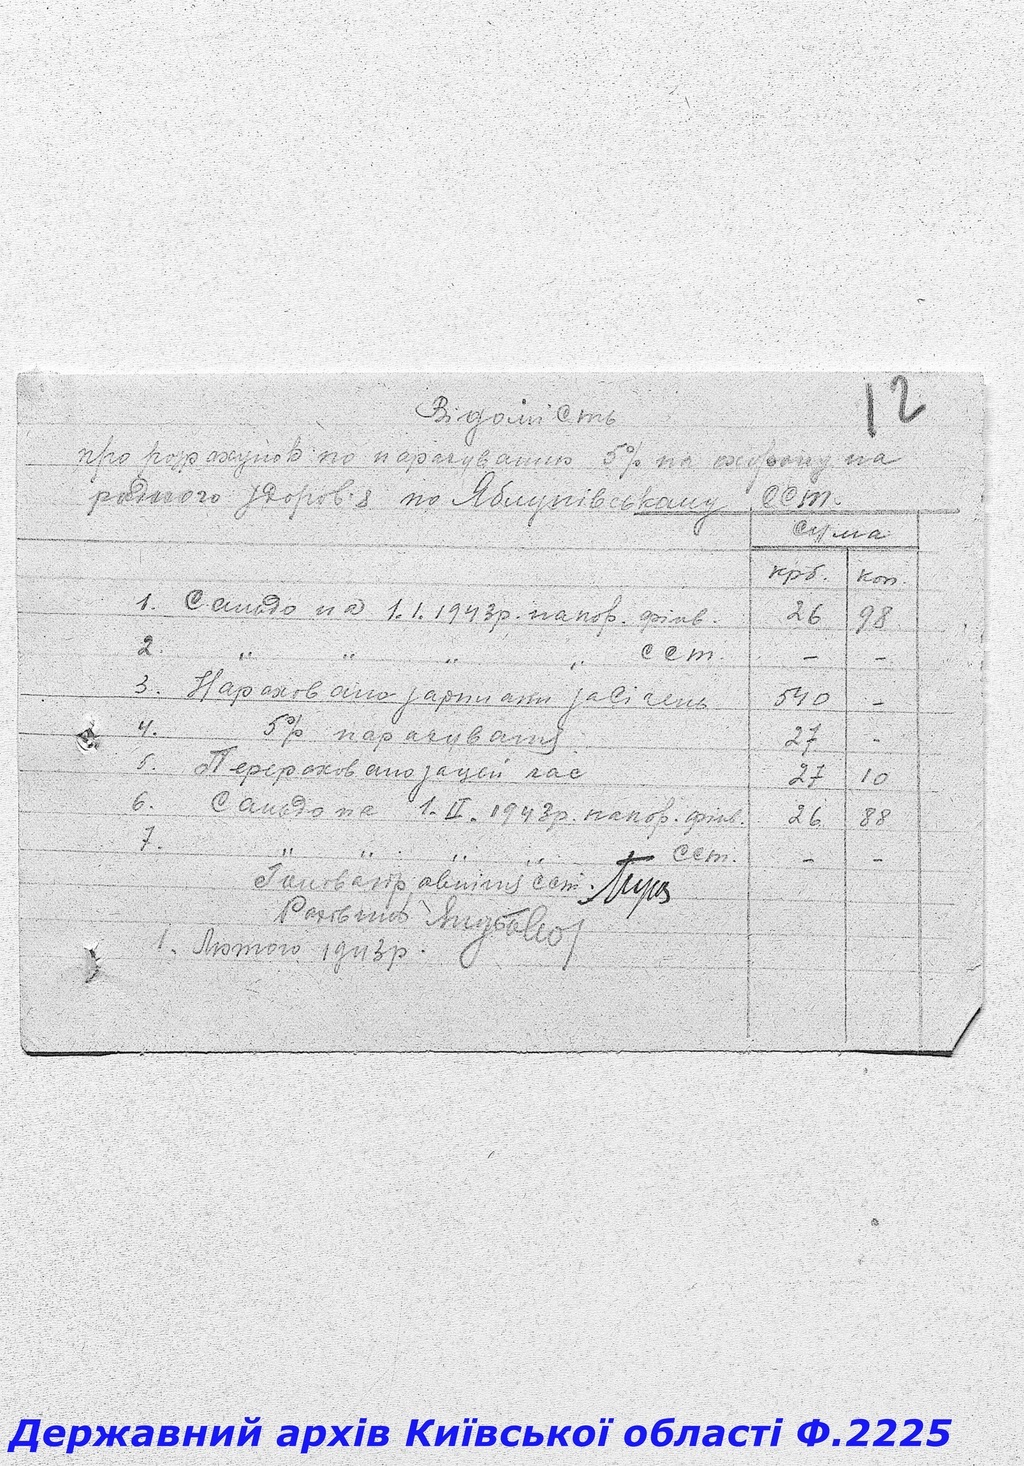 12
Відомість
про розрахунок по нарахуванню 5% на охорону на
родного здоров'я по Яблунівському ССТ.
Сума
крб. коп.
1. Сальдо на 1.I.1943р. на кор. філв. 26 98
2. " " " " ССТ. - -
3. Нараховано зарплати за січень 540 -
4. 5% нарахування 27 -
5. Перераховано за цей час 27 10
6. Сальдо на 1.II.1943р. на кор. філв. 26 88
7. " " " " ССТ. - -
Голова правління ССТ.
Рахівник
1. Лютого 1943р.
Державний архів Київської області Ф.2225